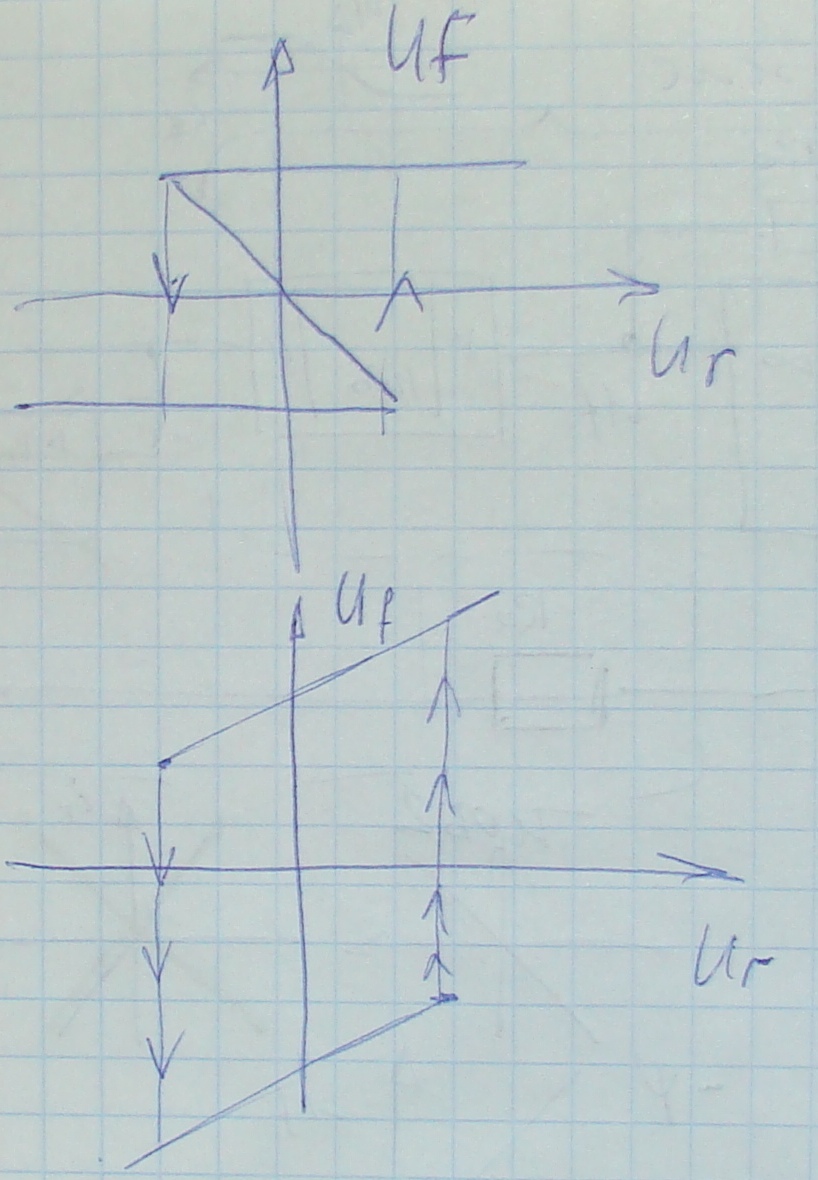 Uf
Ur
Uf
Ur